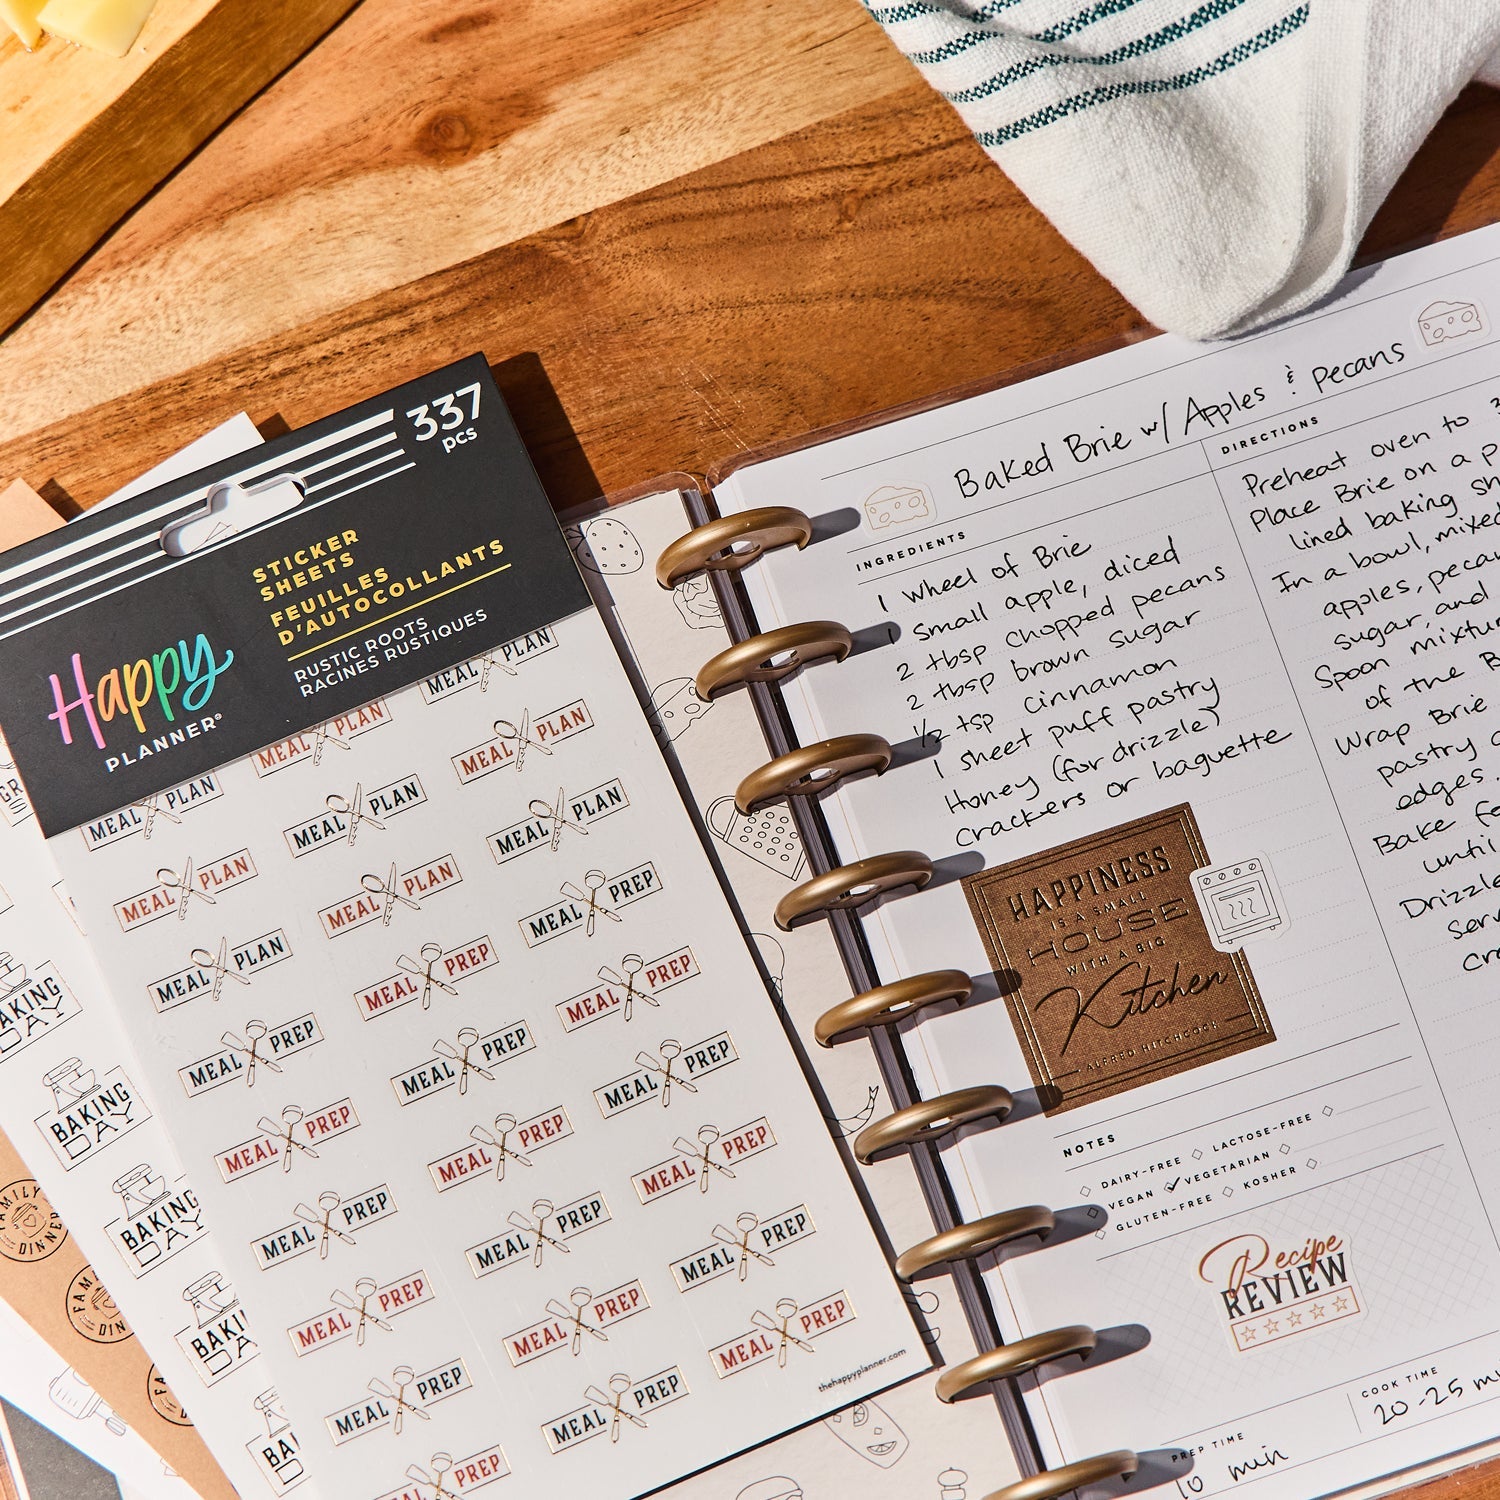 337
pcs
STICKER
SHEETS
FEUILLES
D'AUTOCOLLANTS
RUSTIC ROOTS
RACINES RUSTIQUES
Happy
PLANNER®
MEAL PLAN
MEAL PLAN
MEAL PLAN
MEAL PLAN
MEAL PLAN
MEAL PLAN
MEAL PLAN
MEAL PLAN
MEAL PREP
MEAL PLAN
MEAL PREP
MEAL PREP
MEAL PREP
MEAL PREP
MEAL PREP
MEAL PREP
MEAL PREP
MEAL PREP
MEAL PREP
MEAL PREP
MEAL PREP
MEAL PREP
MEAL PREP
MEAL PREP
MEAL PREP
MEAL PREP
MEAL PREP
thehappyplanner.com
BAKING
DAY
BAKING
DAY
BAKING
DAY
FAMILY
DINNER
Baked Brie w/ Apples & pecans
INGREDIENTS
1 wheel of Brie
1 small apple, diced
2 tbsp chopped pecans
2 tbsp brown sugar
1/2 tsp cinnamon
1 sheet puff pastry
Honey (for drizzle)
Crackers or baguette
HAPPINESS
IS A SMALL
HOUSE
WITH A BIG
Kitchen
- ALFRED HITCHCOCK
DIRECTIONS
Preheat oven to
Place Brie on a
lined baking
In a bowl, mixed
apples,
sugar, and
Spoon
of the
Wrap Brie
pastry
edges.
Bake
until
Drizzle
NOTES
DAIRY-FREE LACTOSE-FREE
VEGAN VEGETARIAN
GLUTEN-FREE KOSHER
Recipe
REVIEW
PREP TIME
10 min
COOK TIME
20-25